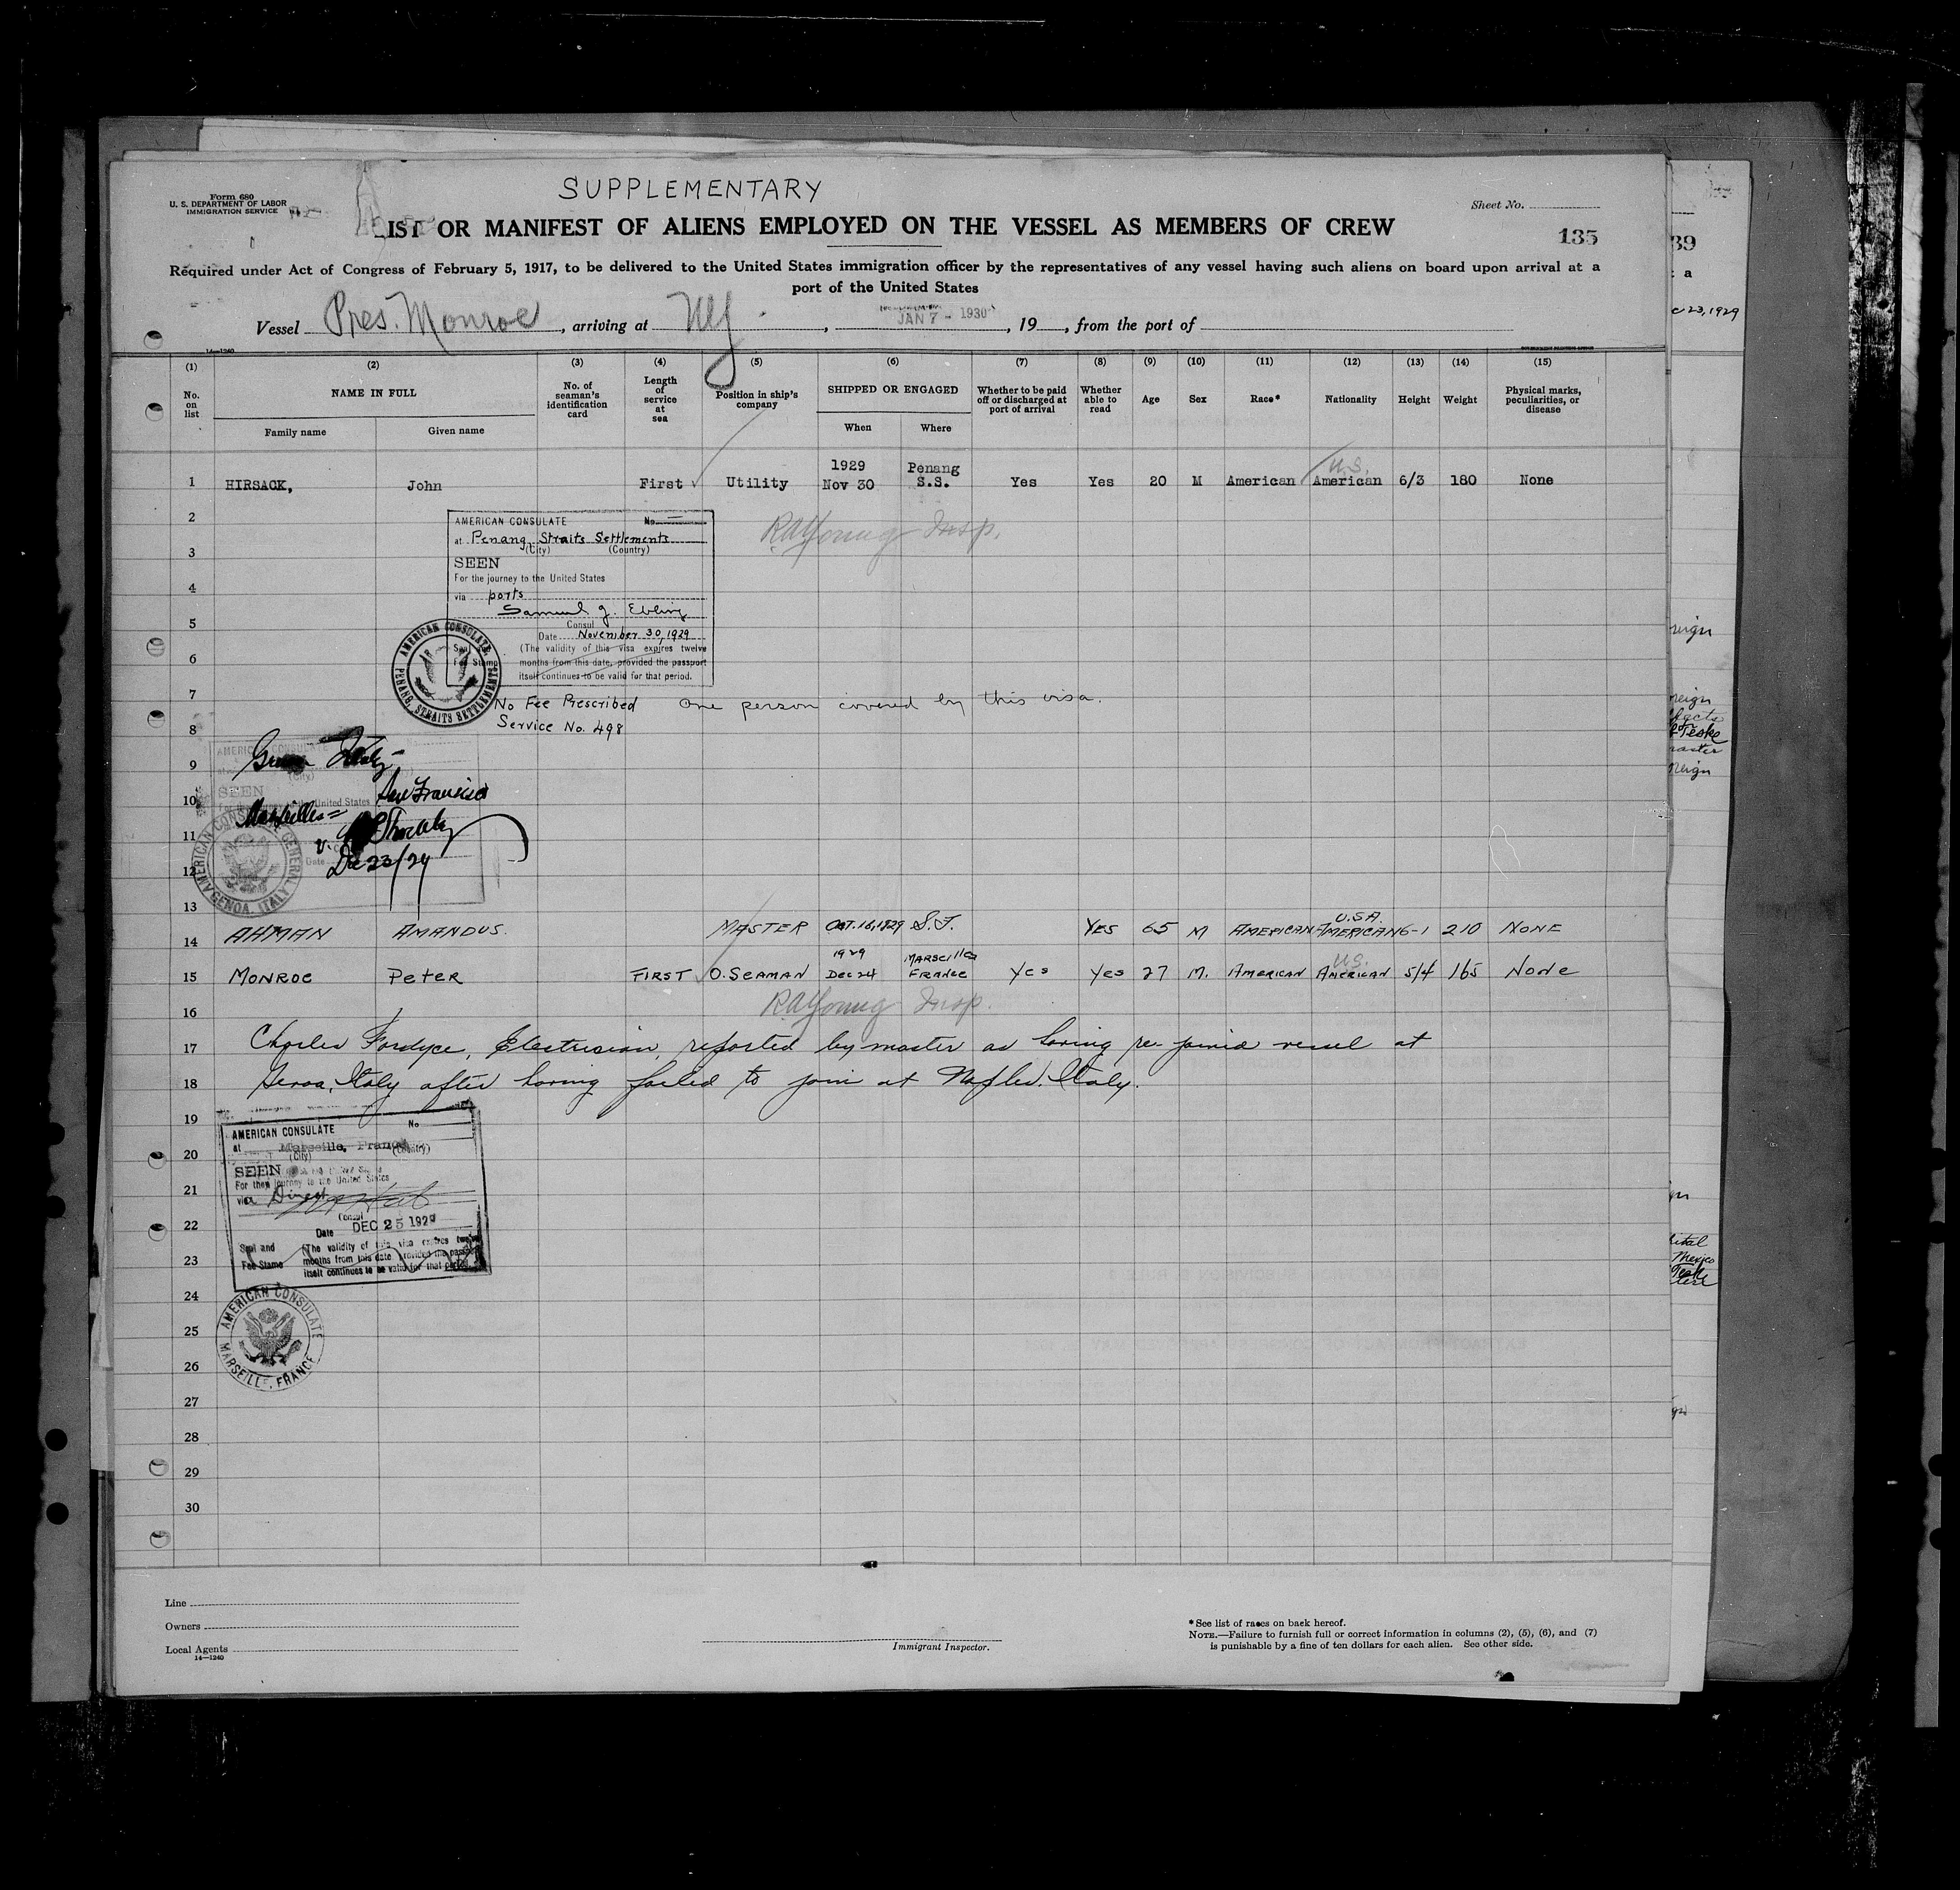 SUPPLEMENTARY
Form 680
U. S. DEPARTMENT OF LABOR
IMMIGRATION SERVICE
Sheet No.
LIST OR MANIFEST OF ALIENS EMPLOYED ON THE VESSEL AS MEMBERS OF CREW
135
Required under Act of Congress of February 5, 1917, to be delivered to the United States immigration officer by the representatives of any vessel having such aliens on board upon arrival at a
port of the United States
Vessel Pres. Monroe, arriving at NY, JAN 7 - 1930, 19, from the port of
14—1240
(1) (2) (3) (4) (5) (6) (7) (8) (9) (10) (11) (12) (13) (14) (15)
No. on list
NAME IN FULL
Family name
Given name
No. of seaman's identification card
Length of service at sea
Position in ship's company
SHIPPED OR ENGAGED
When
Where
Whether to be paid off or discharged at port of arrival
Whether able to read
Age
Sex
Race*
Nationality
Height
Weight
Physical marks, peculiarities, or disease
1929 Penang U.S.
1 HIRSACK, John First Utility Nov 30 S.S. Yes Yes 20 M American American 6/3 180 None
2
3
4
5
6
7
8
9
10
11
12
13
AMERICAN CONSULATE No. —
at Penang, Straits Settlements
(City) (Country)
SEEN
For the journey to the United States
via ports
Samuel J. Ebling
Consul
Date November 30, 1929
(The validity of this visa expires twelve
months from this date, provided the passport
itself continues to be valid for that period.
AMERICAN CONSULATE
PENANG, STRAITS SETTLEMENTS
R A Young Insp.
No Fee Prescribed One person covered by this visa.
Service No. 498
AMERICAN CONSULATE
SEEN
Italy
San Francisco
Marseilles
Dec 23/29
AMERICAN CONSULATE GENERAL
GENOA, ITALY
U.S.A.
14 AHMAN AMANDUS. MASTER OCT. 16, 1929 S.F. YES 65 M AMERICAN AMERICAN 6-1 210 NONE
1929 MARSEILLES U.S.
15 MONROE PETER FIRST O. SEAMAN DEC 24 FRANCE Yes Yes 27 M. AMERICAN AMERICAN 5/4 165 NONE
16 R A Young Insp.
17 Charles Fordyce, Electrician, reported by master as having re-joined vessel at
18 Genoa, Italy after having failed to join at Naples. Italy.
19
20
21
22
23
24
25
26
27
28
29
30
AMERICAN CONSULATE No
at Marseille, France
(City) (Country)
SEEN
For the journey to the United States
via Direct
Consul
Date DEC 25 1929
Seal and
Fee Stamp
(The validity of this visa expires twelve
months from this date provided the passport
itself continues to be valid for that period
AMERICAN CONSULATE
MARSEILLE, FRANCE
Line
Owners
Local Agents
14—1240
Immigrant Inspector.
*See list of races on back hereof.
NOTE.—Failure to furnish full or correct information in columns (2), (5), (6), and (7)
is punishable by a fine of ten dollars for each alien. See other side.
39
a
23, 1929
Teske
Mexico